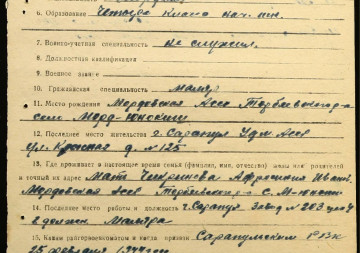 6. Образование Четыре класса нач. шк.
7. Военно-учетная специальность не служил.
8. Должностная квалификация
9. Военное звание
10. Гражданская специальность маляр
11. Место рождения Мордовская Асср Теребеевского р
село Морд-Юнки
12. Последнее место жительства г. Сарапул Удм Асср
ул. Красная д. №125
13. Где проживает в настоящее время семья (фамилия, имя, отчество) жены или родителей
и точный их адрес Мать Афросиния Иван
Мордовская Асср С. М-Юнки
14. Последнее место работы и должность г. Сарапул завод №203 цех
в должн. Маляра
15. Каким райгорвоенкоматом и когда призван Сарапульским РВК
25 февраля